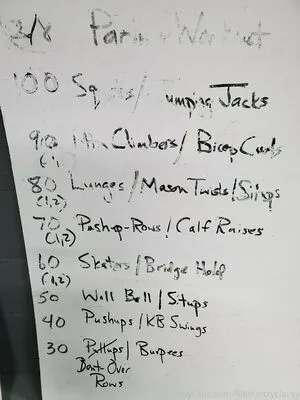 3/8 Partner Workout
100 Squats/Jumping Jacks
90 Mtn Climbers/Bicep Curls
80 Lunges/Mason Twists/Situps
(1,2)
70 Pushup-Rows/Calf Raises
(1,2)
60 Skaters/Bridge Hold
(1,2)
50 Wall Ball/Situps
40 Pushups/KB Swings
30 Pullups/Burpees
Bent Over
Rows